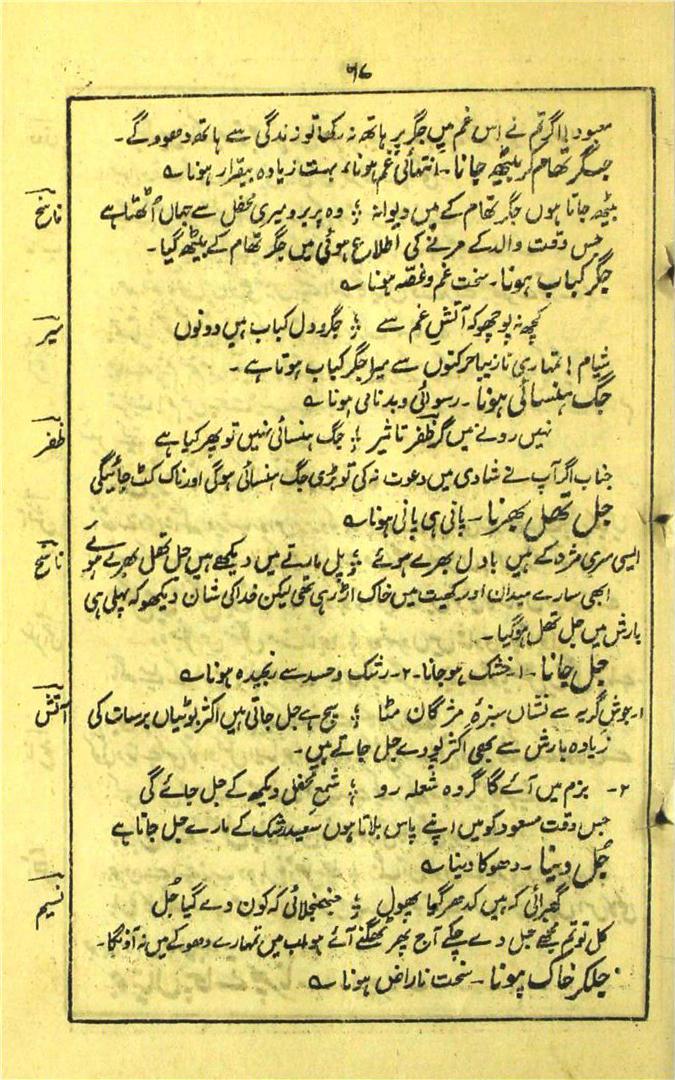 ۷۶
معبود! اگر تم نے اس غم میں جگر پر ہاتھ نہ رکھا تو زندگی سے ہاتھ دھووگے۔
جگر تھام کر بیٹھ جانا۔ انتہائی غم ہونا، بہت زیادہ بیقرار ہونا ؎
ناسخ
بیٹھ جاتا ہوں جگر تھام کے میں دیوانہ ؛ وہ پریرو میری محفل سے جہاں اُٹھتا ہے
جس وقت والد کے مرنے کی اطلاع ہوئی میں جگر تھام کے بیٹھ گیا۔
جگر کباب ہونا۔ سخت غم و غصہ ہونا ؎
میر
کچھ نہ پوچھو کہ آتش غم سے ؛ جگر و دل کباب ہیں دونوں
شیام! تمہاری نازیبا حرکتوں سے میرا جگر کباب ہوتا ہے۔
جگ ہنسائی ہونا۔ رسوائی و بدنامی ہونا ؎
ظفر
نہیں رونے میں گر ظفر تاثیر ؛ جگ ہنسائی نہیں تو پھر کیا ہے
جناب اگر آپ نے شادی میں دعوت نہ کی تو بڑی جگ ہنسائی ہوگی اور ناک کٹ جائیگی
جل تھل بھرنا۔ پانی ہی پانی ہونا ؎
ناسخ
ایسی مری مژہ کے ہیں بادل بھرے ہوئے ؛ پل مارتے میں دیکھے ہیں جل تھل بھرے ہوئے
ابھی سارے میدان اور کھیت میں خاک اڑ رہی تھی لیکن خدا کی شان دیکھو کہ پہلی ہی
بارش میں جل تھل ہوگیا۔
جل جانا۔ ۱۔ خشک ہوجانا۔ ۲۔ رشک و حسد سے رنجیدہ ہونا ؎
آتش
۱۔ جوش گریہ سے نشاں سبزۂ مژگان مٹا ؛ سچ ہے جل جاتی ہیں اکثر بوٹیاں برسات کی
زیادہ بارش سے بھی اکثر پودے جل جاتے ہیں۔
۲۔ بزم میں آئے گا گروہ شعلہ رو ؛ شمع محفل دیکھ کے جل جائے گی
جس وقت مسعود کو میں اپنے پاس بلاتا ہوں سعید رشک کے مارے جل جاتا ہے
جُل دینا۔ دھوکا دینا ؎
نسیم
گھبرائی کہ ہیں کدھر گیا پھول ؛ جھنجلائی کہ کون دے گیا جُل
کل تو تم مجھے جل دے چکے آج پھر ٹھگنے آئے ہو اب میں تمہارے دھوکے میں نہ آؤنگا۔
جلکر خاک ہونا۔ سخت ناراض ہونا ؎